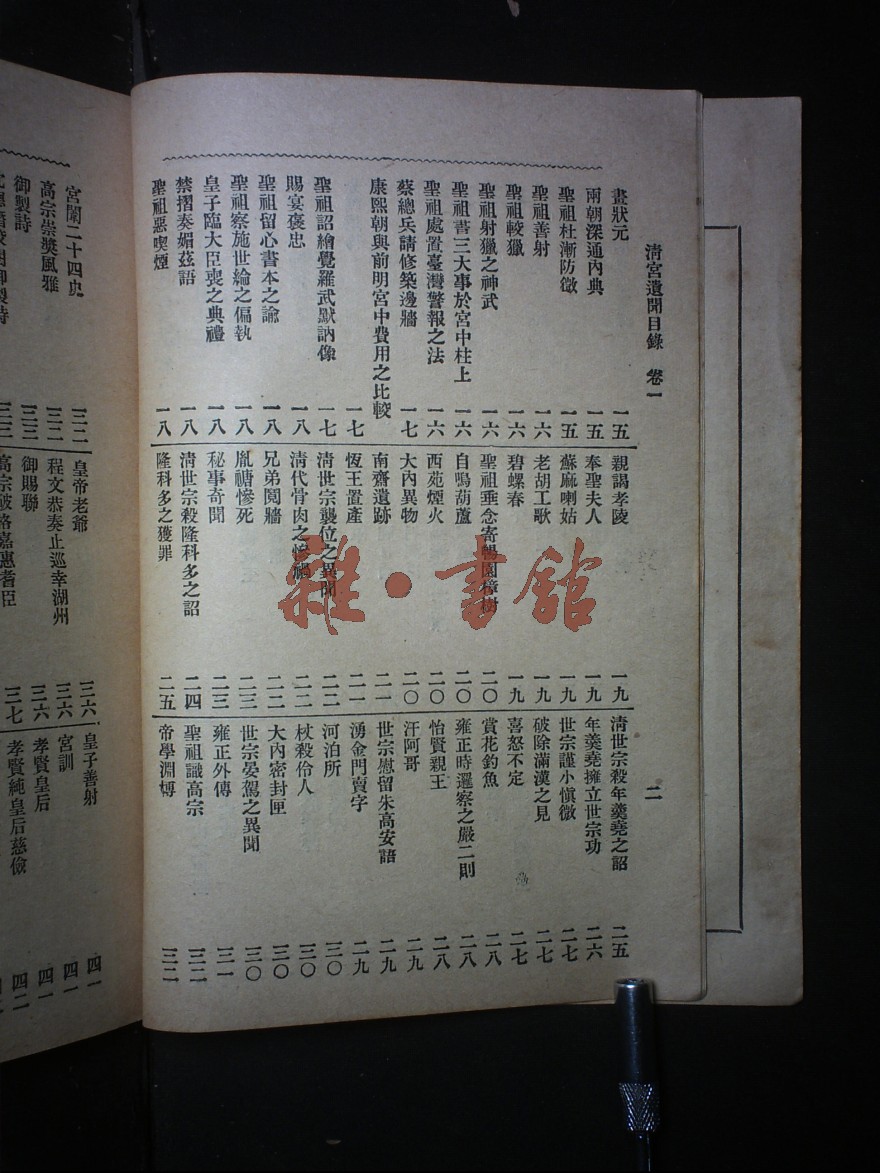 清宮遺聞目錄 卷一
二
畫狀元 一五
兩朝深通內典 一五
聖祖杜漸防微 一五
聖祖善射 一六
聖祖較獵 一六
聖祖射獵之神武 一六
聖祖書三大事於宮中柱上 一六
聖祖處置臺灣警報之法 一六
蔡總兵請修築邊牆 一七
康熙朝與前明宮中費用之比較 一七
聖祖詔繪覺羅武默訥像 一七
賜宴褒忠 一八
聖祖留心書本之諭 一八
聖祖察施世綸之偏執 一八
皇子臨大臣喪之典禮 一八
禁摺奏媚茲語 一八
聖祖惡喫煙 一八
親謁孝陵 一九
奉聖夫人 一九
蘇麻喇姑 一九
老胡工歌 一九
碧螺春 一九
聖祖垂念寄暢園樟樹 二〇
自鳴葫蘆 二〇
西苑煙火 二〇
大內異物 二〇
南齋遺跡 二一
恆王置產 二一
清世宗襲位之異聞 二二
清代骨肉之慘禍 二二
兄弟鬩牆 二二
胤禟慘死 二三
秘事奇聞 二三
清世宗殺隆科多之詔 二四
隆科多之獲罪 二五
清世宗殺年羹堯之詔 二五
年羹堯擁立世宗功 二六
世宗謹小慎微 二七
破除滿漢之見 二七
喜怒不定 二七
賞花釣魚 二八
雍正時邏察之嚴二則 二八
怡賢親王 二八
汗阿哥 二九
世宗慰留朱高安語 二九
湧金門賣字 二九
河泊所 三〇
杖殺伶人 三〇
大內密封匣 三〇
世宗晏駕之異聞 三〇
雍正外傳 三一
聖祖識高宗 三二
帝學淵博 三二
宮闈二十四史 三二
高宗崇獎風雅 三二
御製詩 三三
皇帝老爺 三六
程文恭奏止巡幸湖州 三六
御賜聯 三六
高宗破格嘉惠耆臣 三七
皇子善射 四一
宮訓 四一
孝賢皇后 四一
孝賢純皇后慈儉 四二
雜·書館